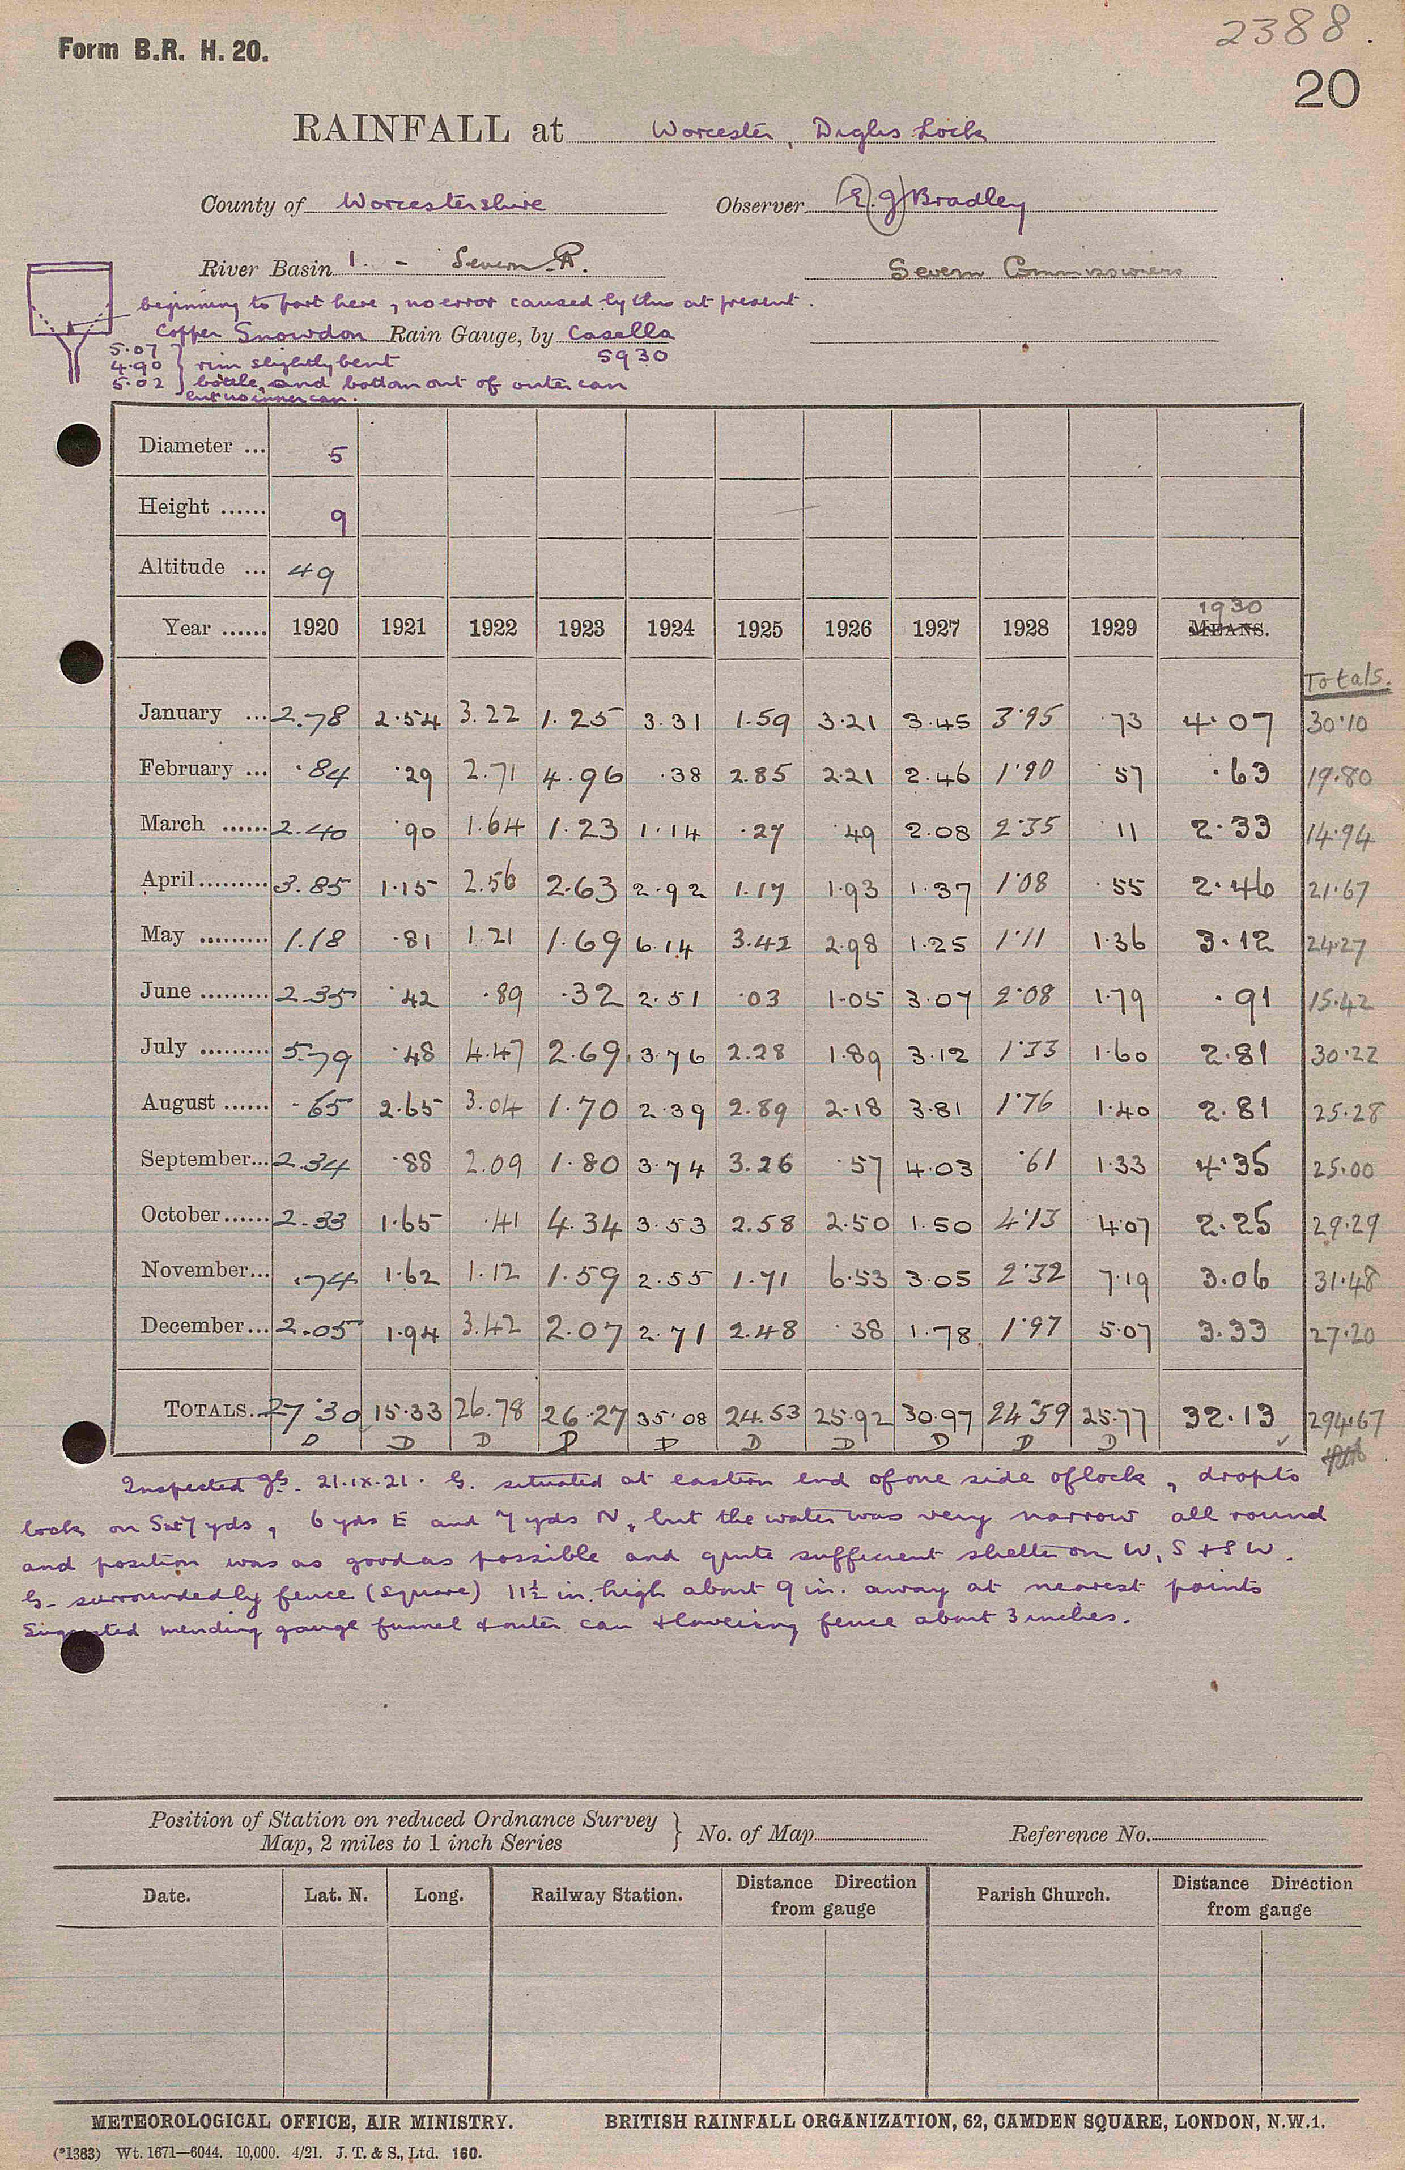 2388.
Form B.R. H. 20.
20
RAINFALL at Worcester, Diglis Lock
County of Worcestershire Observer E. J. Bradley
River Basin 1. - Severn R. Severn Commissioners
beginning to part here, no error caused by this at present.
Copper Snowdon Rain Gauge, by Casella
5930
5.07
4.90 } rim slightly bent
5.02 bottle, and bottom out of outer can
but no inner can.
Diameter ... 5
Height ...... 9
Altitude ... 49
1930
Year ...... 1920 1921 1922 1923 1924 1925 1926 1927 1928 1929 MEANS.
Totals.
January ... 2.78 2.54 3.22 1.25 3.31 1.59 3.21 3.45 3.95 .73 4.07 30.10
February ... .84 .29 2.71 4.96 .38 2.85 2.21 2.46 1.90 57 .63 19.80
March ...... 2.40 .90 1.64 1.23 1.14 .27 .49 2.08 2.35 11 2.33 14.94
April ......... 3.85 1.15 2.56 2.63 2.92 1.17 1.93 1.37 1.08 .55 2.46 21.67
May ......... 1.18 .81 1.21 1.69 6.14 3.42 2.98 1.25 1.11 1.36 3.12 24.27
June ......... 2.35 .42 .89 .32 2.51 .03 1.05 3.07 2.08 1.79 .91 15.42
July ......... 5.79 .48 4.47 2.69 3.76 2.28 1.89 3.12 1.33 1.60 2.81 30.22
August ...... .65 2.65 3.04 1.70 2.39 2.89 2.18 3.81 1.76 1.40 2.81 25.28
September... 2.34 .88 2.09 1.80 3.74 3.26 .57 4.03 .61 1.33 4.35 25.00
October ...... 2.33 1.65 .41 4.34 3.53 2.58 2.50 1.50 4.13 4.07 2.25 29.29
November... .74 1.62 1.12 1.59 2.55 1.71 6.53 3.05 2.32 7.19 3.06 31.48
December ... 2.05 1.94 3.42 2.07 2.71 2.48 .38 1.78 1.97 5.07 3.33 27.20
TOTALS... 27.30 15.33 26.78 26.27 35.08 24.53 25.92 30.97 24.59 25.77 32.13 294.67
D D D D D D D D D D ✓
Inspected 21.IX.21. G. situated at eastern end of one side of lock, drop to
lock on S & 7 yds, 6 yds E and 7 yds N, but the water was very narrow all round
and position was as good as possible and quite sufficient shelter on W, S & S W.
G. surrounded by fence (square) 11½ in. high about 9 in. away at nearest points
Suggested mending gauge funnel & outer can & lowering fence about 3 inches.
Position of Station on reduced Ordnance Survey
Map, 2 miles to 1 inch Series } No. of Map Reference No.
Date. Lat. N. Long. Railway Station. Distance Direction from gauge Parish Church. Distance Direction from gauge
METEOROLOGICAL OFFICE, AIR MINISTRY. BRITISH RAINFALL ORGANIZATION, 62, CAMDEN SQUARE, LONDON, N.W.1.
(*1383) Wt. 1671—6044. 10,000. 4/21. J. T. & S., Ltd. 160.